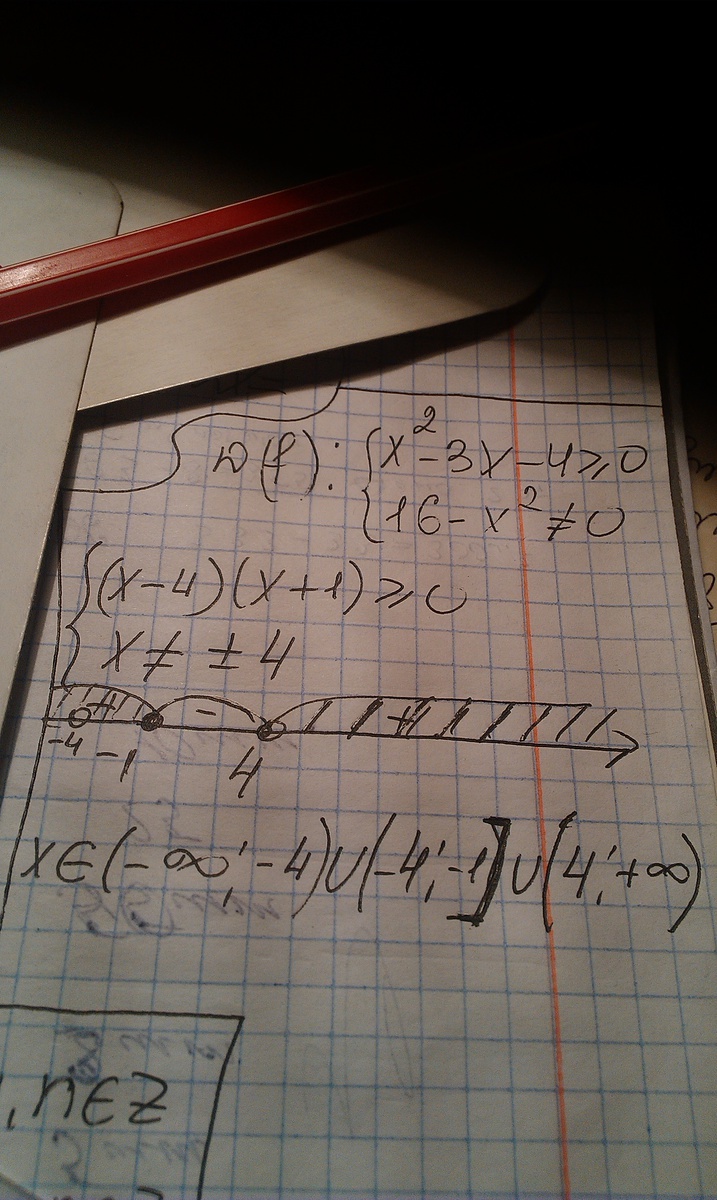 D(f): { x² - 3x - 4 ⩾ 0
16 - x² ≠ 0
{ (x - 4)(x + 1) ⩾ 0
x ≠ ± 4
+ - +
-4 -1 4
x ∈ (-∞; -4) ∪ (-4; -1] ∪ (4; +∞)
, n ∈ Z